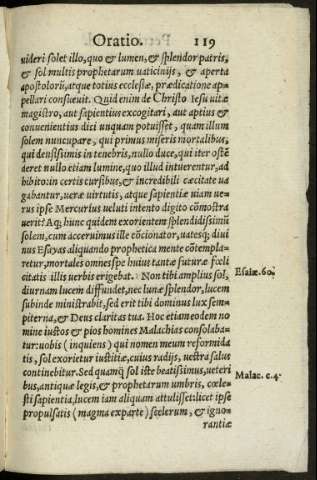 Oratio. 119
uideri solet illo, quo & lumen, & splendor patris,
& sol multis prophetarum uaticinijs, & aperta
apostolorũ, atque totius ecclesiæ, prædicatione ap-
pellari consueuit. Quid enim de Christo Iesu uitæ
magistro, aut sapientius excogitari, aut aptius &
conuenientius dici unquam potuisset, quam illum
solem nuncupare, qui primus miseris mortalibus,
qui densissimis in tenebris, nullo duce, qui iter ostẽ
deret nullo etiam lumine, quo illud intuerentur, ad
hibito: in certis cursibus, & incredibili cæcitate ua
gabantur, ueræ uirtutis, atque sapientiæ uiam ue-
rus ipse Mercurius ueluti intento digito cõmostra
uerit? Aq; hunc quidem exorientem splendidissimũ
solem, cum acerrimus ille cõcionator, uatesq; diui
nus Esayas aliquando prophetica mente cõtempla-
retur, mortales omnes spe huius tantæ futuræ fœli
citatis illis uerbis erigebat. Non tibi amplius sol,
Esaiæ. 60.
diurnam lucem diffundet, nec lunæ splendor, lucem
subinde ministrabit, sed erit tibi dominus lux sem-
piterna, & Deus claritas tua. Hoc etiam eodem no
mine iustos & pios homines Malachias consolaba-
tur: uobis (inquiens) qui nomen meum reformida
tis, sol exorietur iustitiæ, cuius radijs, uestra salus
continebitur. Sed quamq̃ sol iste beatissimus, ueteri
Malac. c. 4.
bus, antiquæ legis, & prophetarum umbris, cœle-
sti sapientia, lucem iam aliquam attulisset: licet ipse
propulsatis (magma ex parte) scelerum, & igno-
rantiæ